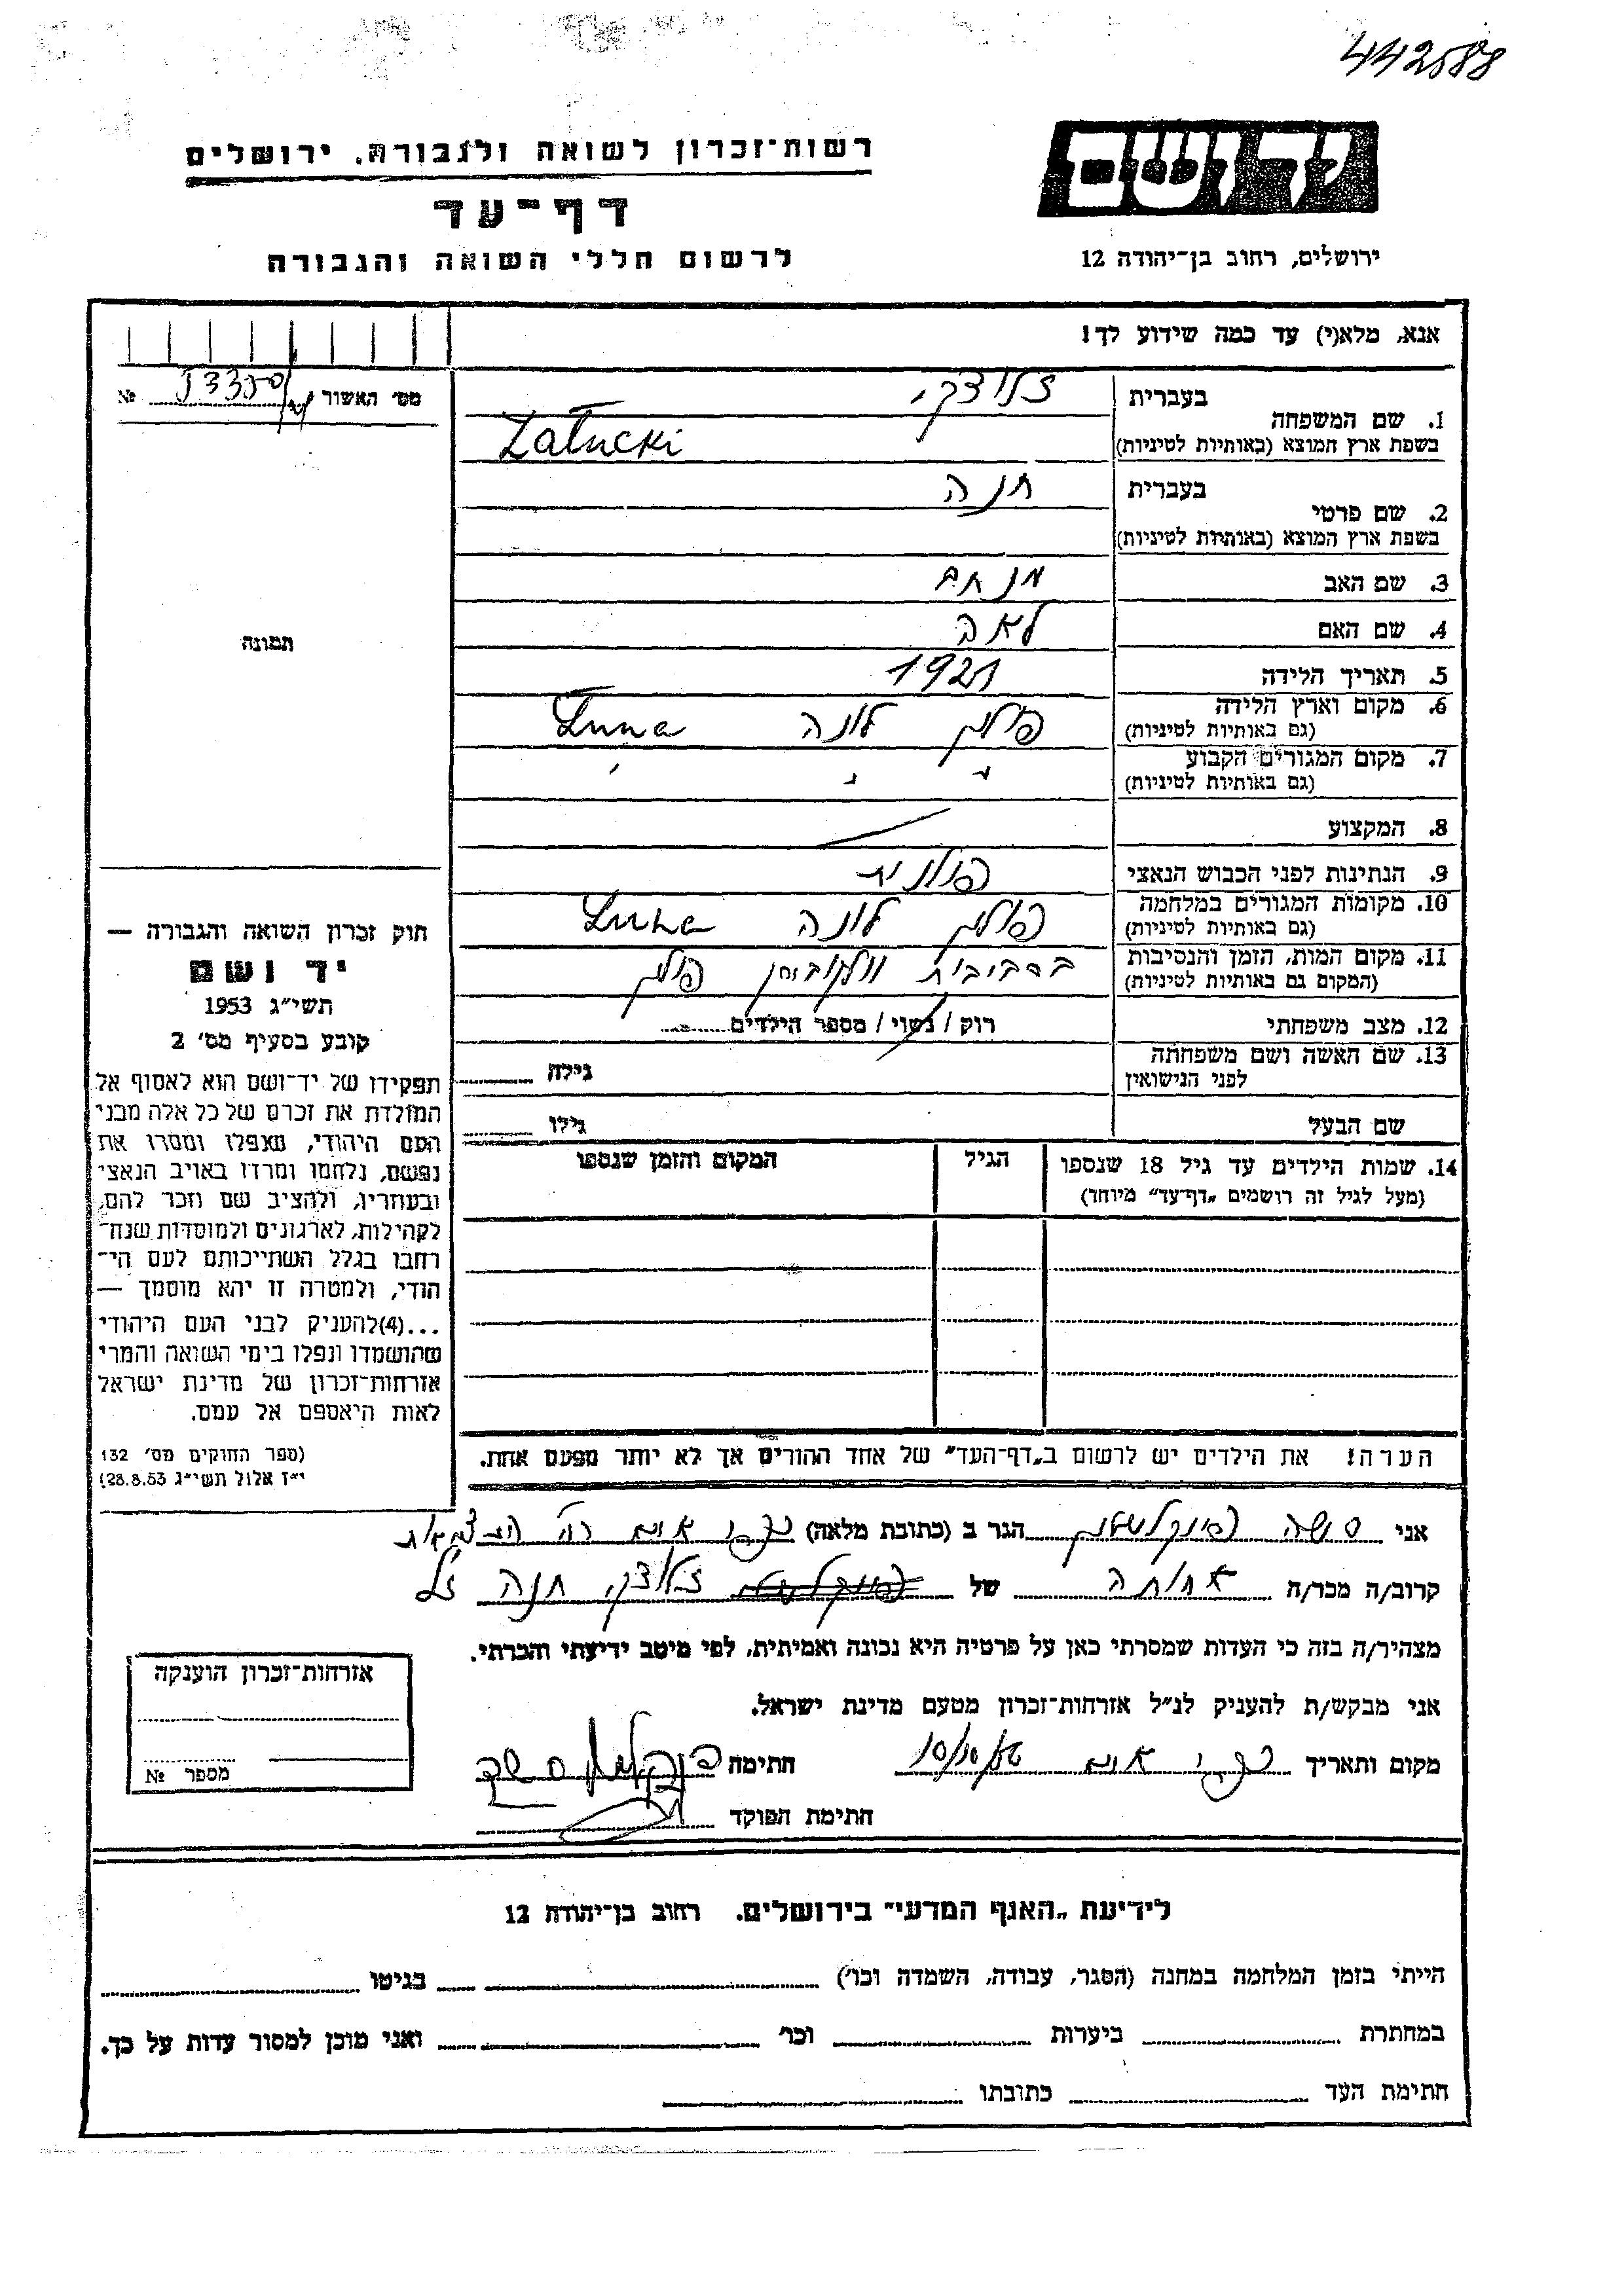 442588
רשות־זכרון לשואה ולגבורה, ירושלים
דף־עד
לרשום חללי השואה והגבורה
יד ושם
ירושלים, רחוב בן־יהודה 12
אנא, מלא(י) עד כמה שידוע לך!
מס׳ האשור № 
1. שם המשפחה
בעברית זלוצקי
בשפת ארץ המוצא (באותיות לטיניות) Załucki
2. שם פרטי
בעברית חנה
בשפת ארץ המוצא (באותיות לטיניות)
3. שם האב מנחם
4. שם האם לאה
תמונה
5. תאריך הלידה 1921
6. מקום וארץ הלידה פולין לונה Łunna
(גם באותיות לטיניות)
7. מקום המגורים הקבוע
(גם באותיות לטיניות)
8. המקצוע
9. הנתינות לפני הכבוש הנאצי פולנית
10. מקומות המגורים במלחמה פולין לונה Łunna
(גם באותיות לטיניות)
11. מקום המות, הזמן והנסיבות בסביבות וולקוביסק פולין
(המקום גם באותיות לטיניות)
12. מצב משפחתי רוק / נשוי / מספר הילדים
13. שם האשה ושם משפחתה
לפני הנישואין גילה
שם הבעל גילו
14. שמות הילדים עד גיל 18 שנספו הגיל המקום והזמן שנספו
(מעל לגיל זה רושמים „דף־עד״ מיוחד)
הערה! את הילדים יש לרשום ב„דף־העד״ של אחד ההורים אך לא יותר מפעם אחת.
חוק זכרון השואה והגבורה —
יד ושם
תשי״ג 1953
קובע בסעיף מס׳ 2
תפקידו של יד־ושם הוא לאסוף אל
המולדת את זכרם של כל אלה מבני
העם היהודי, שנפלו ומסרו את
נפשם, נלחמו ומרדו באויב הנאצי
ובעוזריו, ולהציב שם וזכר להם,
לקהילות, לארגונים ולמוסדות שנח־
רבו בגלל השתייכותם לעם הי־
הודי, ולמטרה זו יהא מוסמך —
...(4)להעניק לבני העם היהודי
שהושמדו ונפלו בימי השואה והמרי
אזרחות־זכרון של מדינת ישראל
לאות היאספם אל עמם.
(ספר החוקים מס׳ 132
י״ז אלול תשי״ג 28.8.53)
אני פינקלשטין הגר ב (כתובת מלאה)
קרוב/ה מכר/ה אחותה של זלוצקי חנה ז״ל
מצהיר/ה בזה כי העדות שמסרתי כאן על פרטיה היא נכונה ואמיתית, לפי מיטב ידיעתי והכרתי.
אני מבקש/ת להעניק לנ״ל אזרחות־זכרון מטעם מדינת ישראל.
מקום ותאריך חתימה
חתימת הפוקד
אזרחות־זכרון הוענקה
מספר №
לידיעת „האגף המדעי״ בירושלים. רחוב בן־יהודה 12
הייתי בזמן המלחמה במחנה (הסגר, עבודה, השמדה וכו׳) בגיטו
במחתרת ביערות וכו׳ ואני מוכן למסור עדות על כך.
חתימת העד כתובתו